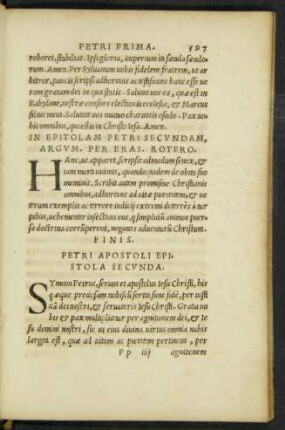 PETRI PRIMA. 597
roboret, stabiliat. Ipsi gloria, imperium in sæcula sæculo
rum. Amen. Per Syluanum uobis fidelem fratrem, ut ar
bitror, paucis scripsi adhortans ac testificans hanc esse ue
ram gratiam dei in qua statis. Salutat uos ea, quæ est in
Babylone, uestræ consors electionis ecclesia, & Marcus
filius meus. Salutate uos mutuo charitatis osculo. Pax uo
bis omnibus, qui estis in Christo Iesu. Amen.
IN EPITOLAM PETRI SECVNDAM,
ARGVM. PER ERAS. ROTERO.
Hanc, ut apparet, scripsit admodum senex, &
iam morti uicinus, quandoquidem de obitu suo
meminit. Scribit autem promiscue Christianis
omnibus, adhortans ad uitæ puritatem, &
rum exemplis ac terrore iudicij extremi deterrés à tur
pibus, uehementer insectans eos, q simplicium animos peruer
sa doctrina corrūperent, negantes aduenturū Christum
FINIS.
PETRI APOSTOLI EPI
STOLA SECVNDA.
SYmeon Petrus, seruus et apostolus Iesu Christi, his
qui æque preciosam nobiscū sortiti sunt fidē, per iusti
tiā dei nostri, & seruatoris Iesu Christi. Gratia uo
bis & pax multiplicetur per agnitionem dei, & Ie
su domini nostri, sic ut eius diuina uirtus omnia nobis
largita est, quæ ad uitam ac pietatem pertinent, per
Pp iij agnitionem